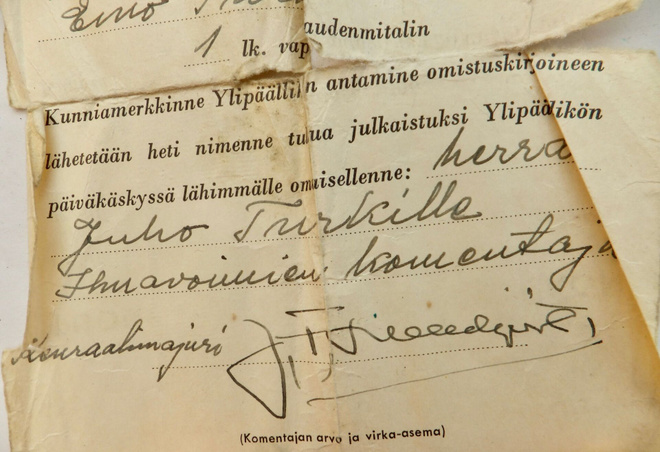 Eino
1 lk. vapaudenmitalin
Kunniamerkkinne Ylipäällikön antamine omistuskirjoineen
lähetetään heti nimenne tultua julkaistuksi Ylipäällikön
päiväkäskyssä lähimmälle omaisellenne: herra
Juho Turkille
Ilmavoimien komentaja
Kenraalimajuri J. F. Lundqvist
(Komentajan arvo ja virka-asema)